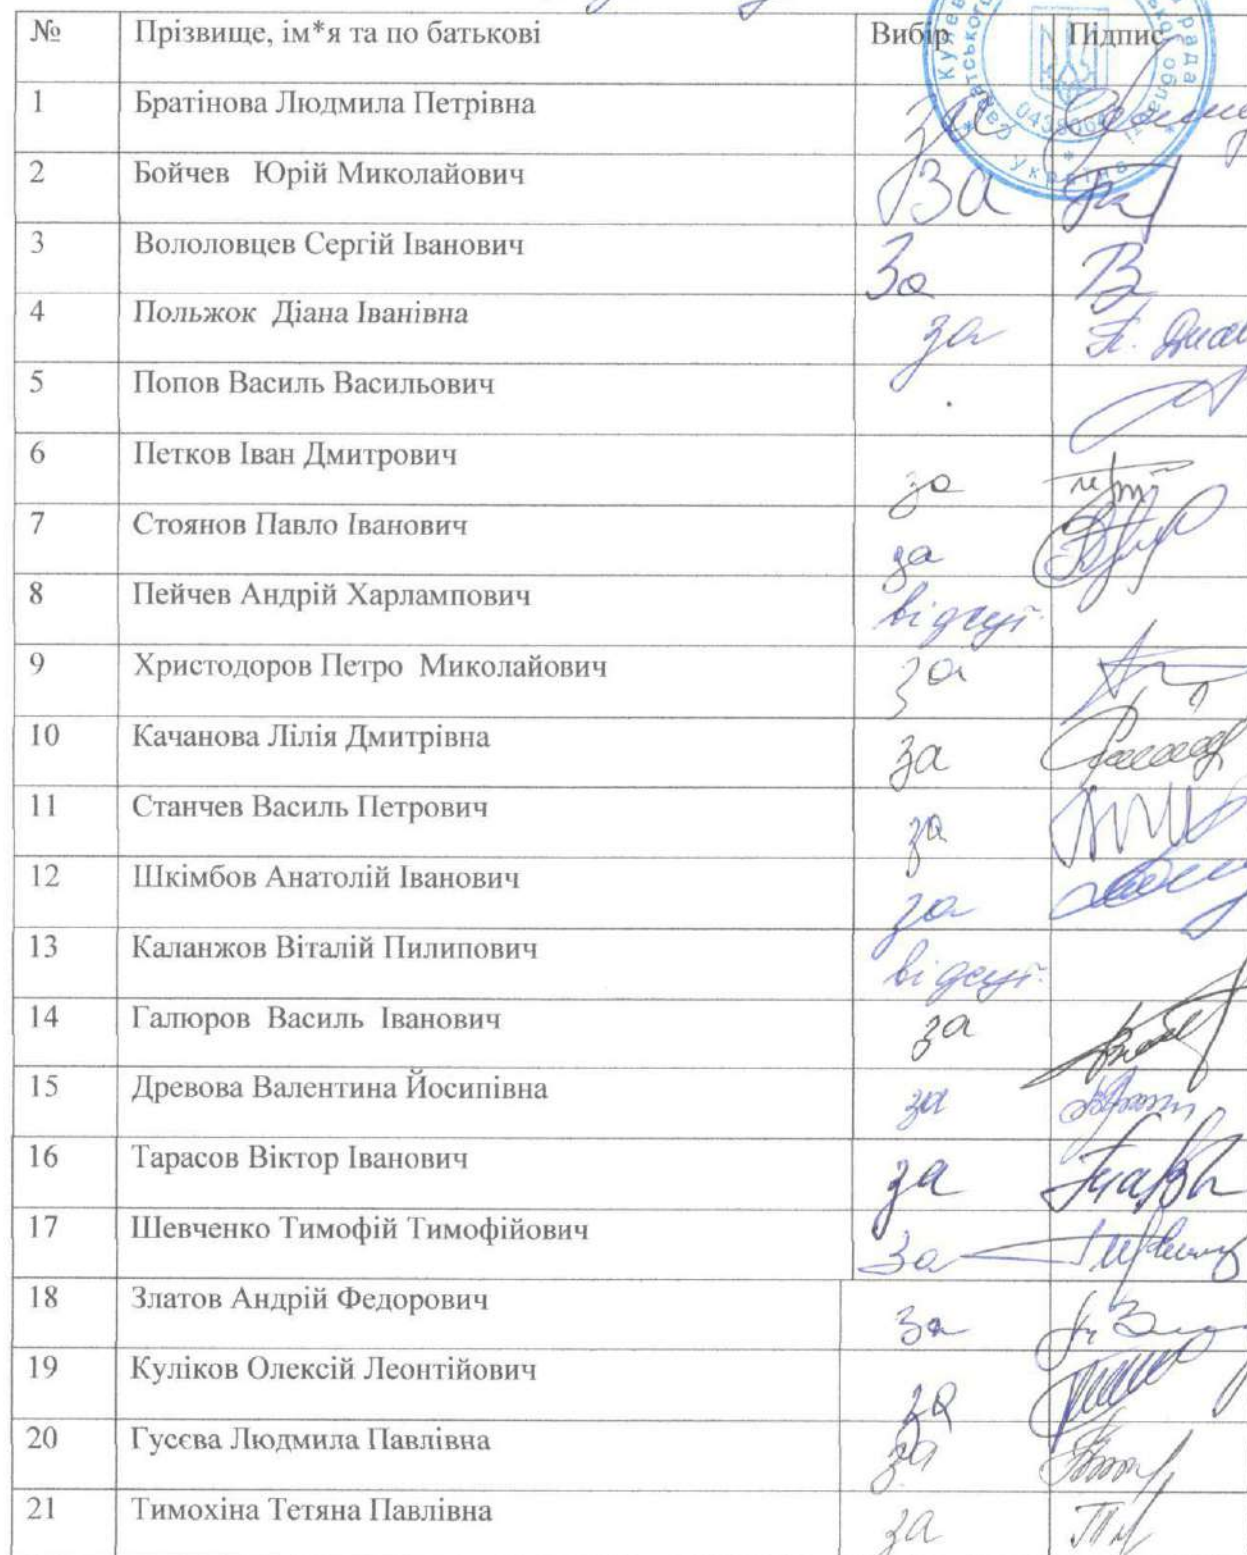 № Прізвище, ім*я та по батькові Вибір Підпис
1 Братінова Людмила Петрівна за
2 Бойчев Юрій Миколайович За
3 Вололовцев Сергій Іванович За
4 Польжок Діана Іванівна за
5 Попов Василь Васильович
6 Петков Іван Дмитрович за
7 Стоянов Павло Іванович за
8 Пейчев Андрій Харлампович відсут.
9 Христодоров Петро Миколайович за
10 Качанова Лілія Дмитрівна за
11 Станчев Василь Петрович за
12 Шкімбов Анатолій Іванович за
13 Каланжов Віталій Пилипович відсут.
14 Галюров Василь Іванович за
15 Древова Валентина Йосипівна за
16 Тарасов Віктор Іванович за
17 Шевченко Тимофій Тимофійович За
18 Златов Андрій Федорович За
19 Куліков Олексій Леонтійович за
20 Гусєва Людмила Павлівна за
21 Тимохіна Тетяна Павлівна за
рада
Україна